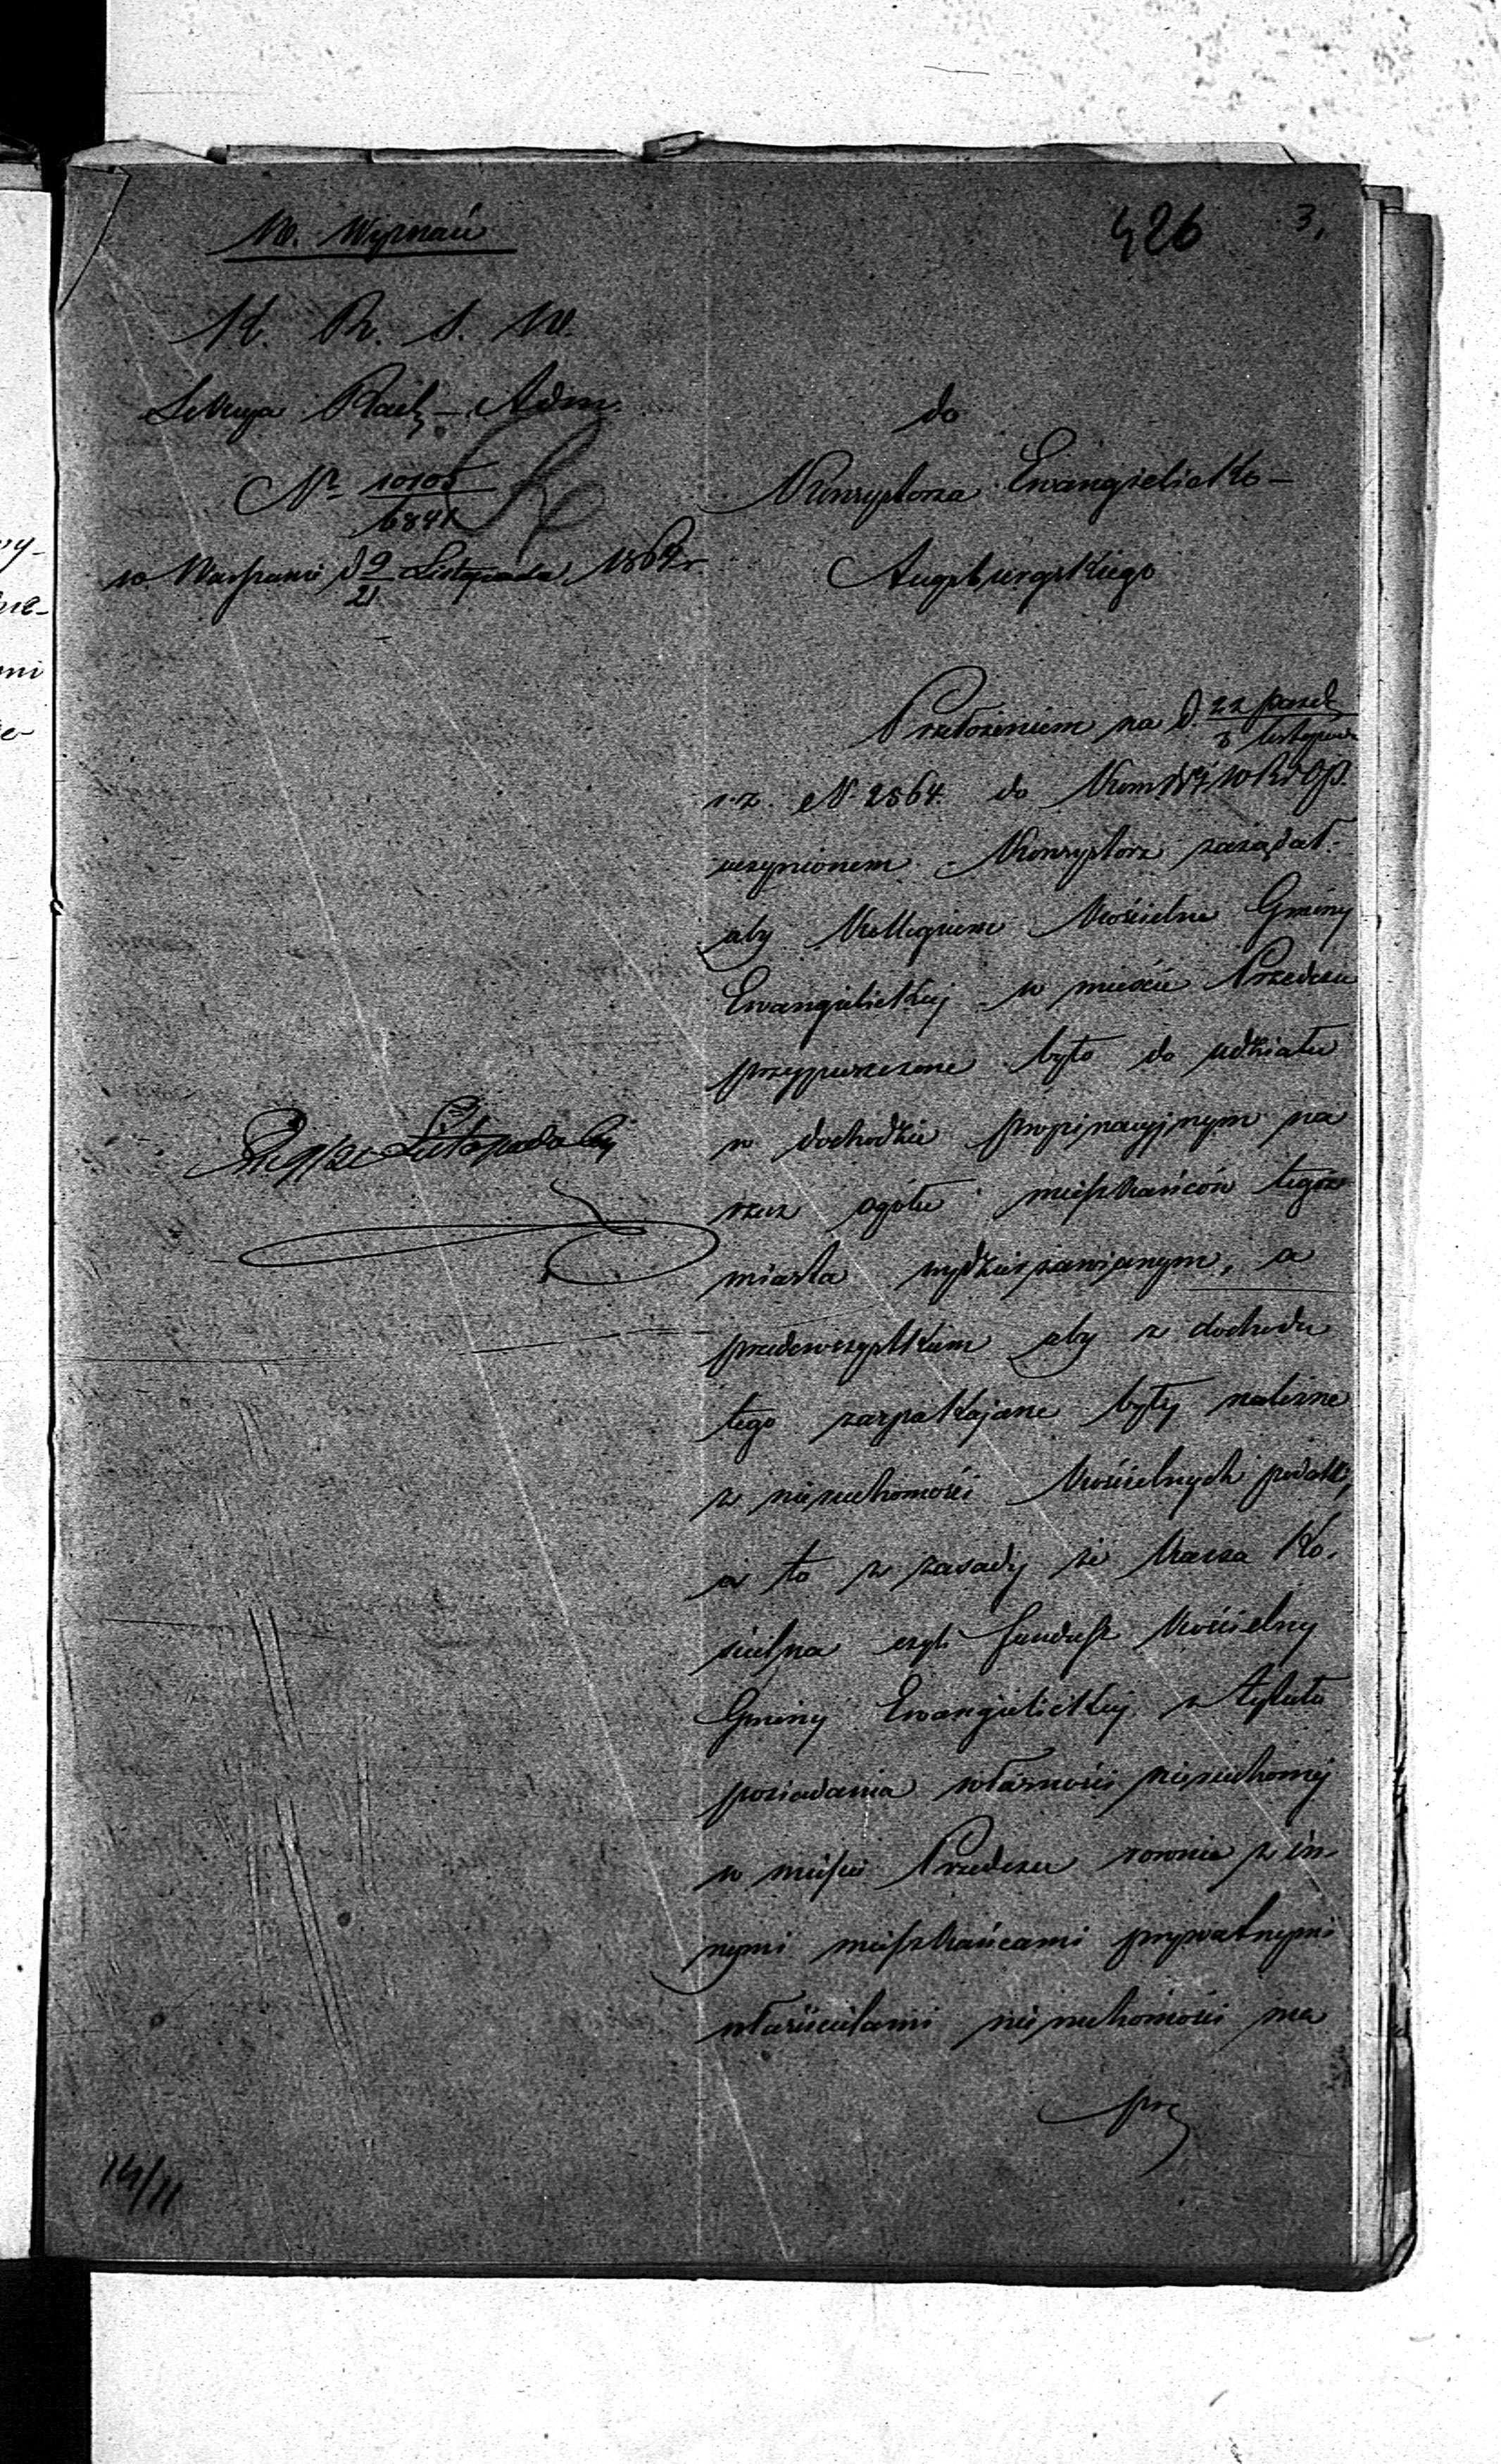 W. Wyznań
426 3,
K. R. S. W.
Sekcya Rach – Adm.
Nr 10105/6841
w Warszawie d 9/21 Listopada 1864 r
do
Konsystorza Ewangelicko –
Augsburgskiego
Przełożeniem na d. 22 paźdz / 3 listopada
r. z. N. 2564. do Kom. W R i O P.
uczynionem Konsystorz zażądał
aby Kollegium Kościelne Gminy
Ewangielickiej w mieście Przedczu
przypuszczone było do udziału
w dochodzie propinacyjnym na
rzecz ogółu mieszkańców tegoż
miasta wydzierżawianym, a
przedewszystkiem aby z dochodu
tego zaspakajane były należne
z nieruchomości Kościelnych podatki,
a to z zasady że Kassa Ko-
ścielna czyli fundusz Kościelny
Gminy Ewangielickiej z tytułu
posiadania własności nieruchomej
w mieście Przedczu rownie z in-
nymi mieszkańcami prywatnymi
właścicielami nieruchomości ma
pr
9/21 Listopada
14/11
wy-
mi